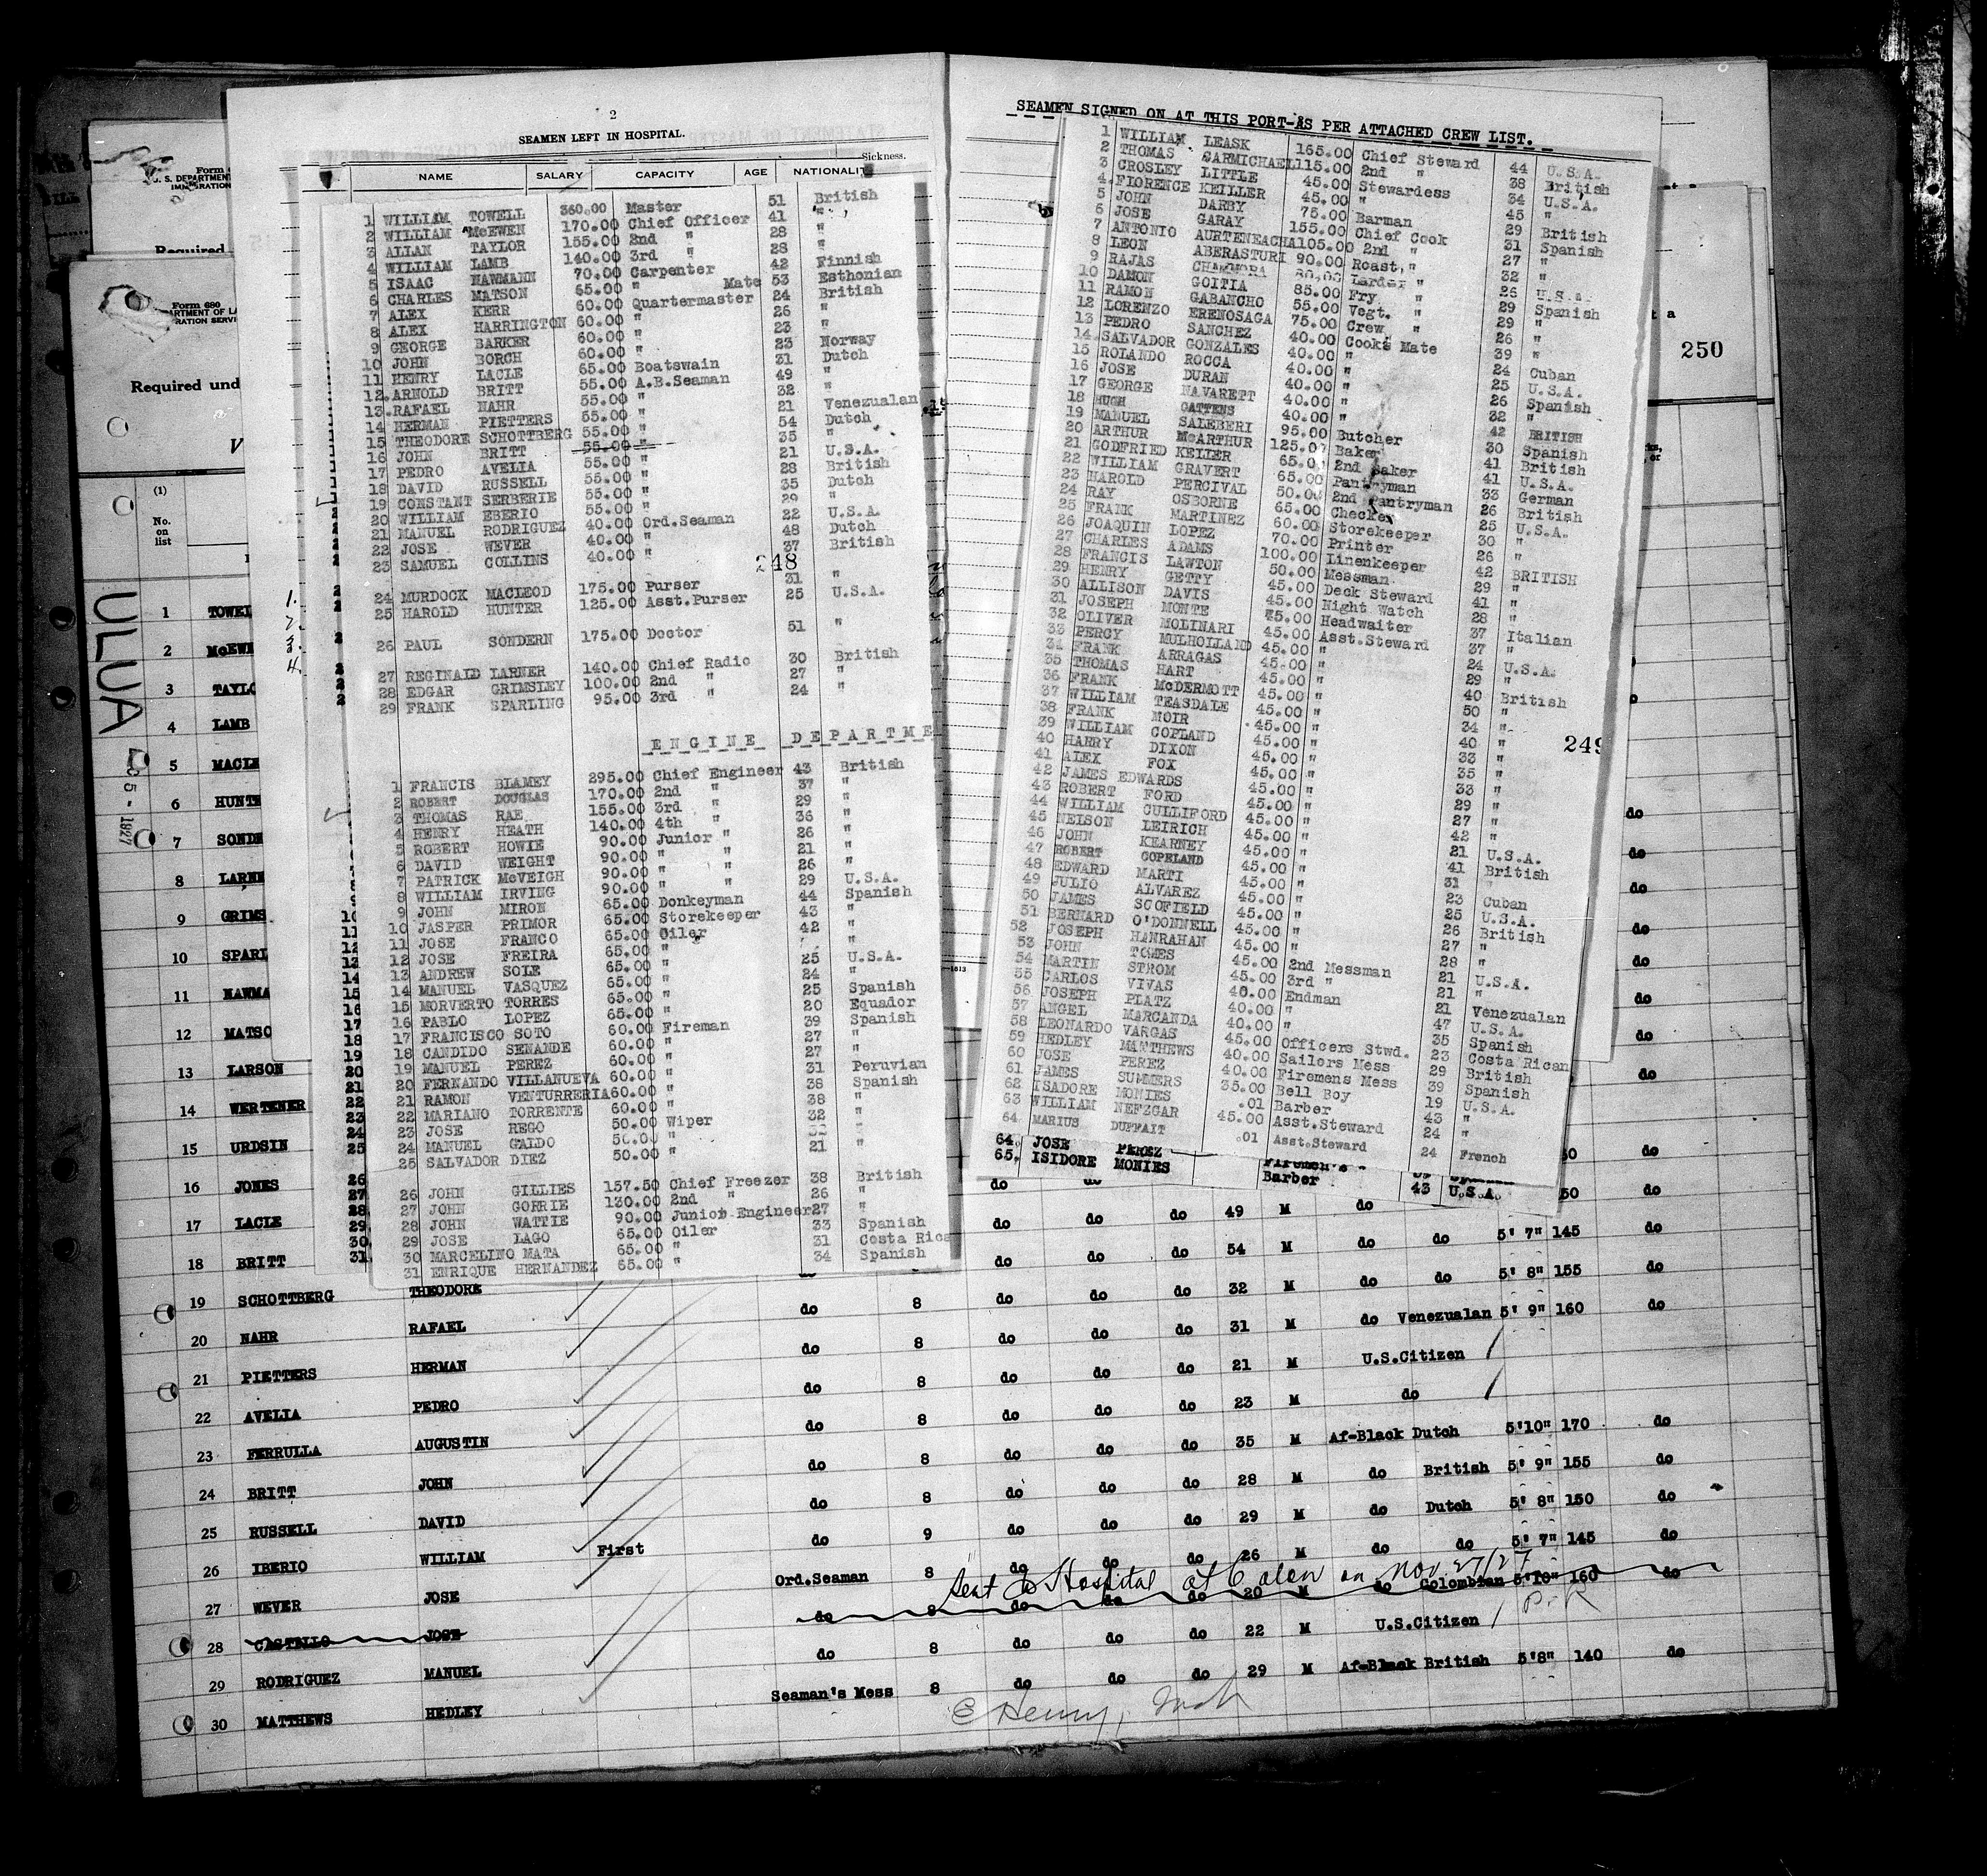 2
SEAMEN LEFT IN HOSPITAL.
Sickness.
NAME SALARY CAPACITY AGE NATIONALITY
1 WILLIAM TOWELL 360.00 Master 51 British
2 WILLIAM McEWEN 170.00 Chief Officer 41 "
3 ALLAN TAYLOR 155.00 2nd " 28 "
4 WILLIAM LAMB 140.00 3rd " 28 "
5 ISAAC NAWMANN 70.00 Carpenter 42 Finnish
6 CHARLES MATSON 65.00 " Mate 53 Esthonian
7 ALEX KERR 60.00 Quartermaster 24 British
8 ALEX HARRINGTON 60.00 " 26 "
9 GEORGE BARKER 60.00 " 23 "
10 JOHN BORCH 60.00 " 23 Norway
11 HENRY LACLE 65.00 Boatswain 31 Dutch
12 ARNOLD BRITT 55.00 A.B.Seaman 49 "
13 RAFAEL NAHR 55.00 " 32 "
14 HERMAN PIETTERS 55.00 " 21 Venezualan
15 THEODORE SCHOTTBERG 55.00 " 54 Dutch
16 JOHN BRITT 55.00 " 35 "
17 PEDRO AVELIA 55.00 " 21 U.S.A.
18 DAVID RUSSELL 55.00 " 28 British
19 CONSTANT SERBERIE 55.00 " 35 Dutch
20 WILLIAM EBERIO 55.00 " 29 "
21 MANUEL RODRIGUEZ 40.00 Ord.Seaman 22 U.S.A.
22 JOSE WEVER 40.00 " 48 Dutch
23 SAMUEL COLLINS 40.00 " 37 British
248
24 MURDOCK MACLEOD 175.00 Purser 31 "
25 HAROLD HUNTER 125.00 Asst.Purser 25 U.S.A.
26 PAUL SONDERN 175.00 Doctor 51 "
27 REGINALD LARNER 140.00 Chief Radio 30 British
28 EDGAR GRIMSLEY 100.00 2nd " 27 "
29 FRANK SPARLING 95.00 3rd " 24 "
ENGINE DEPARTME
1 FRANCIS BLAMEY 295.00 Chief Engineer 43 British
2 ROBERT DOUGLAS 170.00 2nd " 37 "
3 THOMAS RAE 155.00 3rd " 29 "
4 HENRY HEATH 140.00 4th " 36 "
5 ROBERT HOWIE 90.00 Junior " 26 "
6 DAVID WEIGHT 90.00 " " 21 "
7 PATRICK McVEIGH 90.00 " " 26 "
8 WILLIAM IRVING 90.00 " " 29 U.S.A.
9 JOHN MIRON 65.00 Donkeyman 44 Spanish
10 JASPER PRIMOR 65.00 Storekeeper 43 "
11 JOSE FRANCO 65.00 Oiler 42 "
12 JOSE FREIRA 65.00 " "
13 ANDREW SOLE 65.00 " 25 U.S.A.
14 MANUEL VASQUEZ 65.00 " 24 "
15 MORVERTO TORRES 65.00 " 25 Spanish
16 PABLO LOPEZ 65.00 " 20 Equador
17 FRANCISCO SOTO 60.00 Fireman 39 Spanish
18 CANDIDO SENANDE 60.00 " 27 "
19 MANUEL PEREZ 60.00 " 27 "
20 FERNANDO VILLANUEVA 60.00 " 31 Peruvian
21 RAMON VENTURRERIA 60.00 " 38 Spanish
22 MARIANO TORRENTE 60.00 " 38 "
23 JOSE REGO 50.00 Wiper 32 "
24 MANUEL GALDO 50.00 " "
25 SALVADOR DIEZ 50.00 " 21 "
26 JOHN GILLIES 157.50 Chief Freezer 38 British
27 JOHN GORRIE 130.00 2nd " 26 "
28 JOHN WATTIE 90.00 Junior Engineer 27 "
29 JOSE LAGO 65.00 Oiler 33 Spanish
30 MARCELINO MATA 65.00 " 31 Costa Rica
31 ENRIQUE HERNANDEZ 65.00 " 34 Spanish
SEAMEN SIGNED ON AT THIS PORT-AS PER ATTACHED CREW LIST.
1 WILLIAM LEASK 165.00 Chief Steward 44 U.S.A.
2 THOMAS CARMICHAEL 115.00 2nd " 38 British
3 CROSLEY LITTLE 45.00 Stewardess 34 U.S.A.
4 FLORENCE KEILLER 45.00 " 45 "
5 JOHN DARBY 75.00 Barman 29 British
6 JOSE GARAY 155.00 Chief Cook 31 Spanish
7 ANTONIO AURTENEACHA 105.00 2nd " 27 "
8 LEON ABERASTURI 90.00 Roast " 32 "
9 RAJAS CHAMORA 80.00 Larder " 26 U.S.A.
10 DAMON GOITIA 85.00 Fry " 29 Spanish
11 RAMON GABANCHO 55.00 Vegt. " 29 "
12 LORENZO ERENOSAGA 75.00 Crew " 26 "
13 PEDRO SANCHEZ 40.00 Cooks Mate 39 "
14 SALVADOR GONZALES 40.00 " 24 Cuban
15 ROLANDO ROCCA 40.00 " 25 U.S.A.
16 JOSE DURAN 40.00 " 26 Spanish
17 GEORGE NAVARETT 40.00 " 32 "
18 HUGH GATTENS 95.00 Butcher 42 BRITISH
19 MANUEL SALEBERI 125.0 Baker 30 Spanish
20 ARTHUR McARTHUR 65.0 2nd Baker 41 British
21 GODFRIED KELLER 65.00 Pantryman 41 U.S.A.
22 WILLIAM GRAVERT 50.00 2nd Pantryman 33 German
23 HAROLD PERCIVAL 65.00 Checker 26 British
24 RAY OSBORNE 60.00 Storekeeper 25 U.S.A.
25 FRANK MARTINEZ 70.00 Printer 30 "
26 JOAQUIN LOPEZ 100.00 Linenkeeper 26 "
27 CHARLES ADAMS 50.00 Messman 42 BRITISH
28 FRANCIS LAWTON 45.00 Deck Steward 29 "
29 HENRY GETTY 45.00 Night Watch 41 "
30 ALLISON DAVIS 45.00 Headwaiter 28 "
31 JOSEPH MONTE 45.00 Asst.Steward 37 Italian
32 OLIVER MOLINARI 45.00 " 37 "
33 PERCY MULHOLLAND 45.00 " 24 U.S.A.
34 FRANK ARRAGAS 45.00 " 29 "
35 THOMAS HART 45.00 " 40 British
36 FRANK McDERMOTT 45.00 " 50 "
37 WILLIAM TEASDALE 45.00 " 34 "
38 FRANK MOIR 45.00 " 40 "
39 WILLIAM COPLAND 45.00 " 33 "
40 HARRY DIXON 45.00 " 35 "
41 ALEX FOX 45.00 " 33 "
42 JAMES EDWARDS 45.00 " 29 "
43 ROBERT FORD 45.00 " 27 "
44 WILLIAM CULLIFORD 45.00 " 42 "
45 NELSON LEIRICH 45.00 " 21 U.S.A.
46 JOHN KEARNEY 45.00 " 41 British
47 ROBERT COPELAND 45.00 " 31 "
48 EDWARD MARTI 45.00 " 23 Cuban
49 JULIO ALVAREZ 45.00 " 25 U.S.A.
50 JAMES SCOFIELD 45.00 " 26 British
51 BERNARD O'DONNELL 45.00 " 27 "
52 JOSEPH HANRAHAN 45.00 " 28 "
53 JOHN TOMES 45.00 2nd Messman 21 U.S.A.
54 MARTIN STROM 45.00 3rd " 21 "
55 CARLOS VIVAS 40.00 Endman 21 Venezualan
56 JOSEPH PLATZ 40.00 " 47 U.S.A.
57 ANGEL MARCANDA 40.00 " 35 Spanish
58 LEONARDO VARGAS 45.00 Officers Stwd. 23 Costa Rican
59 HEDLEY MATTHEWS 40.00 Sailors Mess 29 British
60 JOSE PEREZ 40.00 Firemens Mess 39 Spanish
61 JAMES SUMMERS 35.00 Bell Boy 19 U.S.A.
62 ISADORE MONIES .01 Barber 43 "
63 WILLIAM NEFZGAR 45.00 Asst.Steward 24 "
64 MARIUS DUFFAIT .01 Asst.Steward 24 French
64. JOSE PEREZ Firemen's
65. ISIDORE MONIES Barber 43 U.S.A.
249
250
Form 680
Required und
(1)
No. on list
ULUA
5 - 1927
1 TOWE
2 McEWE
3 TAYLO
4 LAMB
5 MACLE
6 HUNTE
7 SONDE
8 LARNE
9 GRIMS
10 SPARL
11 NAWMA
12 MATSO
13 LARSON
14 WERTENER
15 URDSIN
16 JONES
17 LACLE do do do 49 M do
18 BRITT do do do 54 M do do 5' 7" 145 do
19 SCHOTTBERG THEODORE do 8 do do do 32 M do do 5' 8" 155 do
20 NAHR RAFAEL do 8 do do do 31 M do Venezualan 5' 9" 160 do
21 PIETTERS HERMAN do 8 do do do 21 M U.S.Citizen
22 AVELIA PEDRO do 8 do do do 23 M do
23 FERRULLA AUGUSTIN do 8 do do do 35 M Af-Black Dutch 5'10" 170 do
24 BRITT JOHN do 8 do do do 28 M do British 5' 9" 155 do
25 RUSSELL DAVID do 9 do do do 29 M do Dutch 5' 8" 150 do
26 IBERIO WILLIAM First Ord.Seaman 8 do do do 26 M do do 5' 7" 145 do
Sent to Hospital at Colon on Nov 27/27
27 WEVER JOSE do 8 do do do 20 M do Colombian 5'10" 160 do
28 CASTELLO JOSE do 8 do do do 22 M U.S.Citizen P.R
29 RODRIGUEZ MANUEL Seaman's Mess 8 do do do 29 M Af-Black British 5'8" 140 do
30 MATTHEWS HEDLEY